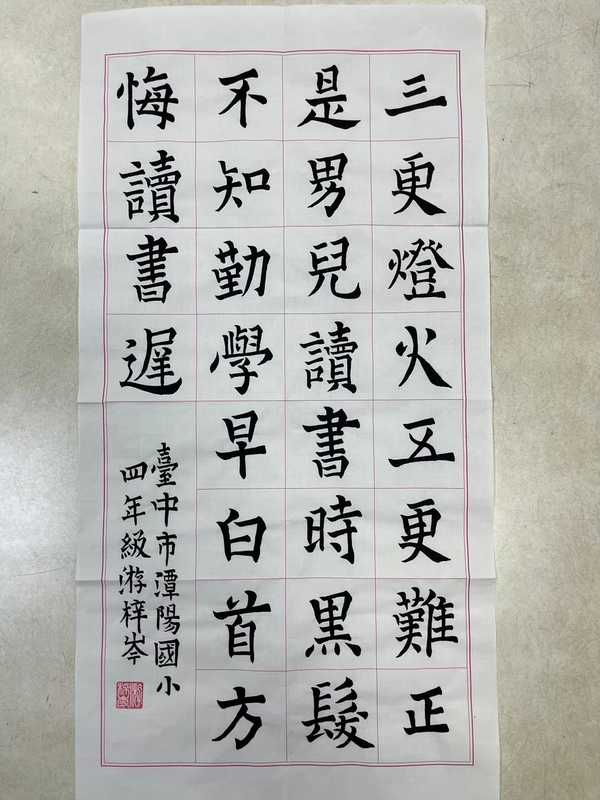 三更燈火五更難正
是男兒讀書時黑髮
不知勤學早白首方
悔讀書遲
臺中市潭陽國小
四年級游梓岑